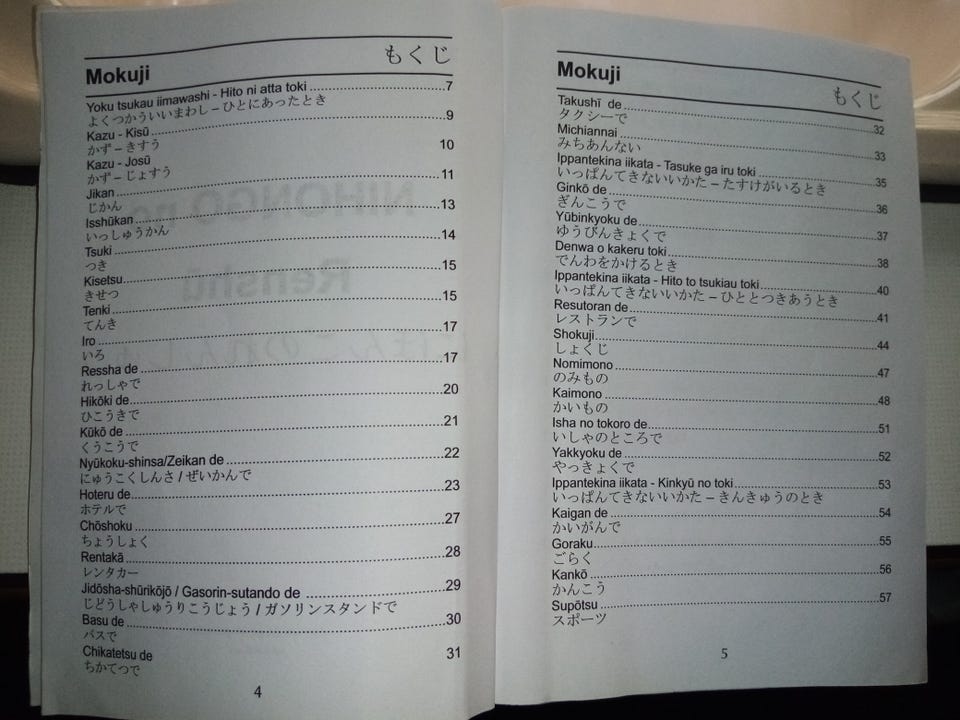 もくじ
Mokuji
Yoku tsukau iimawashi - Hito ni atta toki ........ 7
よくつかういいまわし – ひとにあったとき
Kazu - Kisū ........ 9
かず – きすう
Kazu - Josū 10
かず – じょすう
Jikan ........ 11
じかん
Isshūkan ........ 13
いっしゅうかん
Tsuki ........ 14
つき
Kisetsu ........ 15
きせつ
Tenki ........ 15
てんき
Iro ........ 17
いろ
Ressha de ........ 17
れっしゃで
Hikōki de ........ 20
ひこうきで
Kūkō de ........ 21
くうこうで
Nyūkoku-shinsa/Zeikan de ........ 22
にゅうこくしんさ / ぜいかんで
Hoteru de ........ 23
ホテルで
Chōshoku ........ 27
ちょうしょく
Rentakā ........ 28
レンタカー
Jidōsha-shūrikōjō / Gasorin-sutando de ........ 29
じどうしゃしゅうりこうじょう / ガソリンスタンドで
Basu de ........ 30
バスで
Chikatetsu de 31
ちかてつで
4
Mokuji
もくじ
Takushī de ........ 32
タクシーで
Michiannai ........ 33
みちあんない
Ippantekina iikata - Tasuke ga iru toki ........ 35
いっぱんてきないいかた – たすけがいるとき
Ginkō de ........ 36
ぎんこうで
Yūbinkyoku de ........ 37
ゆうびんきょくで
Denwa o kakeru toki ........ 38
でんわをかけるとき
Ippantekina iikata - Hito to tsukiau toki ........ 40
いっぱんてきないいかた – ひととつきあうとき
Resutoran de ........ 41
レストランで
Shokuji ........ 44
しょくじ
Nomimono ........ 47
のみもの
Kaimono ........ 48
かいもの
Isha no tokoro de ........ 51
いしゃのところで
Yakkyoku de ........ 52
やっきょくで
Ippantekina iikata - Kinkyū no toki ........ 53
いっぱんてきないいかた – きんきゅうのとき
Kaigan de ........ 54
かいがんで
Goraku ........ 55
ごらく
Kankō ........ 56
かんこう
Supōtsu ........ 57
スポーツ
5